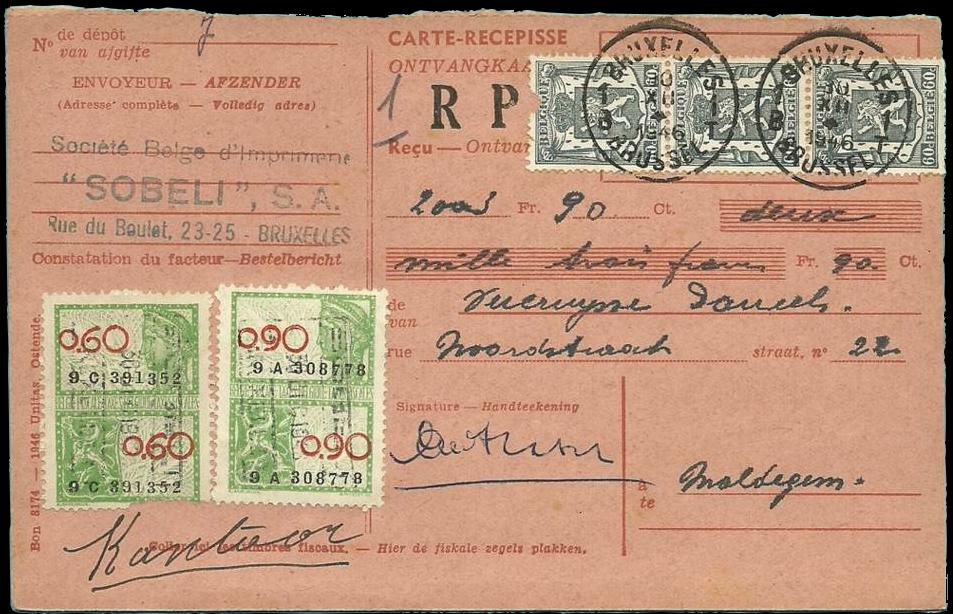 N° de dépôt
van afgifte
7
ENVOYEUR — AFZENDER
(Adresse complète — Volledig adres)
Société Belge d'Imprimerie
"SOBELI", S. A.
Rue du Boulet, 23-25 - BRUXELLES
Constatation du facteur—Bestelbericht
CARTE-RECEPISSE
ONTVANGKAA
1
R P
Reçu — Ontvan
BELGIE 60
BELGIE 60
BELGIE 60
BRUXELLES
1 1
B T
XII
1946
BRUSSEL
BRUXELLES
1 1
B T
XII
1946
BRUSSEL
2003 Fr. 90 Ct. deux
mille trois francs Fr. 90 Ct.
de
van
Vucruysse Daniels.
rue Noordstraat straat, n° 22
0.60
9 C 391352
0.60
9 C 391352
0.90
9 A 308778
0.90
9 A 308778
Signature — Handteekening
à
te
Maldegem.
Kantoor
Coller ici les timbres fiscaux. — Hier de fiskale zegels plakken.
Bon 8174 — 1946 Unitas, Ostende.